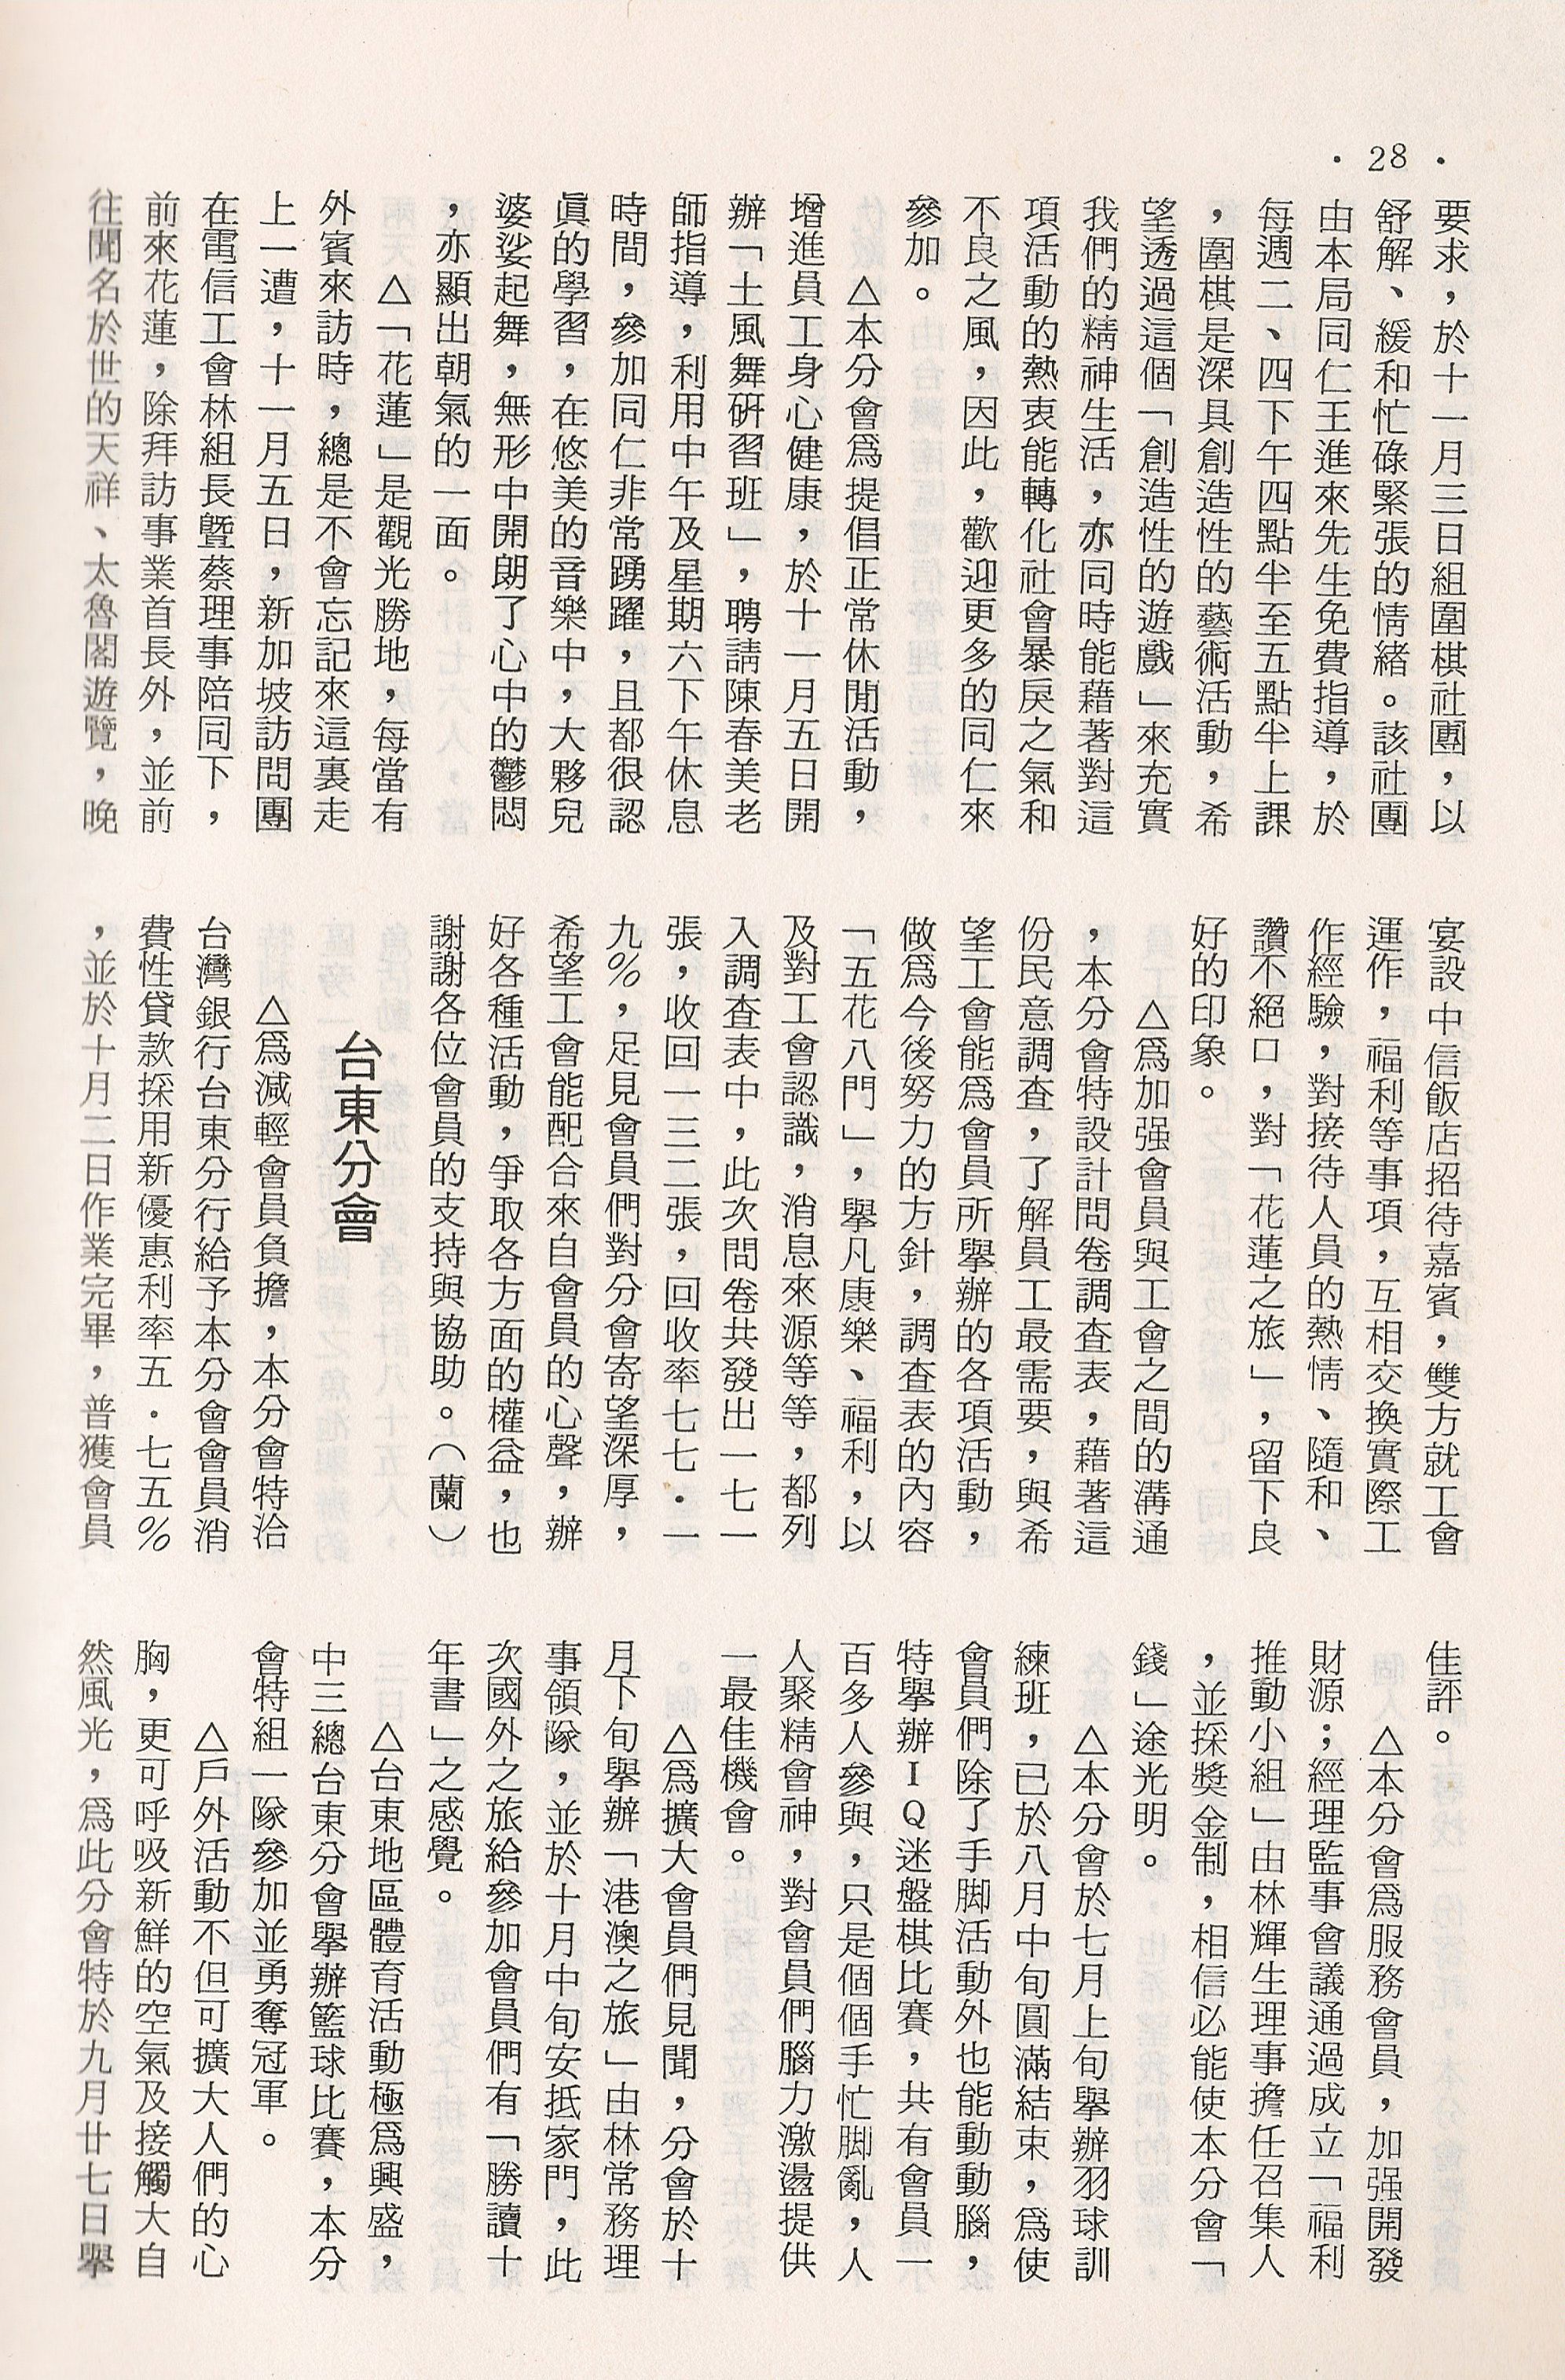 • 28 •
要求，於十一月三日組圍棋社團，以
舒解、緩和忙碌緊張的情緒。該社團
由本局同仁王進來先生免費指導，於
每週二、四下午四點半至五點半上課
，圍棋是深具創造性的藝術活動，希
望透過這個「創造性的遊戲」來充實
我們的精神生活，亦同時能藉著對這
項活動的熱衷能轉化社會暴戾之氣和
不良之風，因此，歡迎更多的同仁來
參加。
△本分會爲提倡正常休閒活動，
增進員工身心健康，於十一月五日開
辦「土風舞硏習班」，聘請陳春美老
師指導，利用中午及星期六下午休息
時間，參加同仁非常踴躍，且都很認
眞的學習，在悠美的音樂中，大夥兒
婆娑起舞，無形中開朗了心中的鬱悶
，亦顯出朝氣的一面。
△「花蓮」是觀光勝地，每當有
外賓來訪時，總是不會忘記來這裏走
上一遭，十一月五日，新加坡訪問團
在電信工會林組長曁蔡理事陪同下，
前來花蓮，除拜訪事業首長外，並前
往聞名於世的天祥、太魯閣遊覽，晚
宴設中信飯店招待嘉賓，雙方就工會
運作，福利等事項，互相交換實際工
作經驗，對接待人員的熱情、隨和、
讚不絕口，對「花蓮之旅」，留下良
好的印象。
△爲加强會員與工會之間的溝通
，本分會特設計問卷調查表，藉著這
份民意調查，了解員工最需要，與希
望工會能爲會員所舉辦的各項活動，
做爲今後努力的方針，調查表的內容
「五花八門」，舉凡康樂、福利，以
及對工會認識，消息來源等等，都列
入調查表中，此次問卷共發出一七一
張，收回一三二張，回收率七七．一
九％，足見會員們對分會寄望深厚，
希望工會能配合來自會員的心聲，辦
好各種活動，爭取各方面的權益，也
謝謝各位會員的支持與協助。（蘭）
台東分會
△爲減輕會員負擔，本分會特洽
台灣銀行台東分行給予本分會會員消
費性貸款採用新優惠利率五．七五％
，並於十月二日作業完畢，普獲會員
佳評。
△本分會爲服務會員，加强開發
財源；經理監事會議通過成立「福利
推動小組」由林輝生理事擔任召集人
，並採獎金制，相信必能使本分會「
錢」途光明。
△本分會於七月上旬舉辦羽球訓
練班，已於八月中旬圓滿結束，爲使
會員們除了手脚活動外也能動動腦，
特舉辦ＩＱ迷盤棋比賽，共有會員一
百多人參與，只是個個手忙脚亂，人
人聚精會神，對會員們腦力激盪提供
一最佳機會。
△爲擴大會員們見聞，分會於十
月下旬舉辦「港澳之旅」由林常務理
事領隊，並於十月中旬安抵家門，此
次國外之旅給參加會員們有「勝讀十
年書」之感覺。
△台東地區體育活動極爲興盛，
中三總台東分會舉辦籃球比賽，本分
會特組一隊參加並勇奪冠軍。
△戶外活動不但可擴大人們的心
胸，更可呼吸新鮮的空氣及接觸大自
然風光，爲此分會特於九月廿七日舉